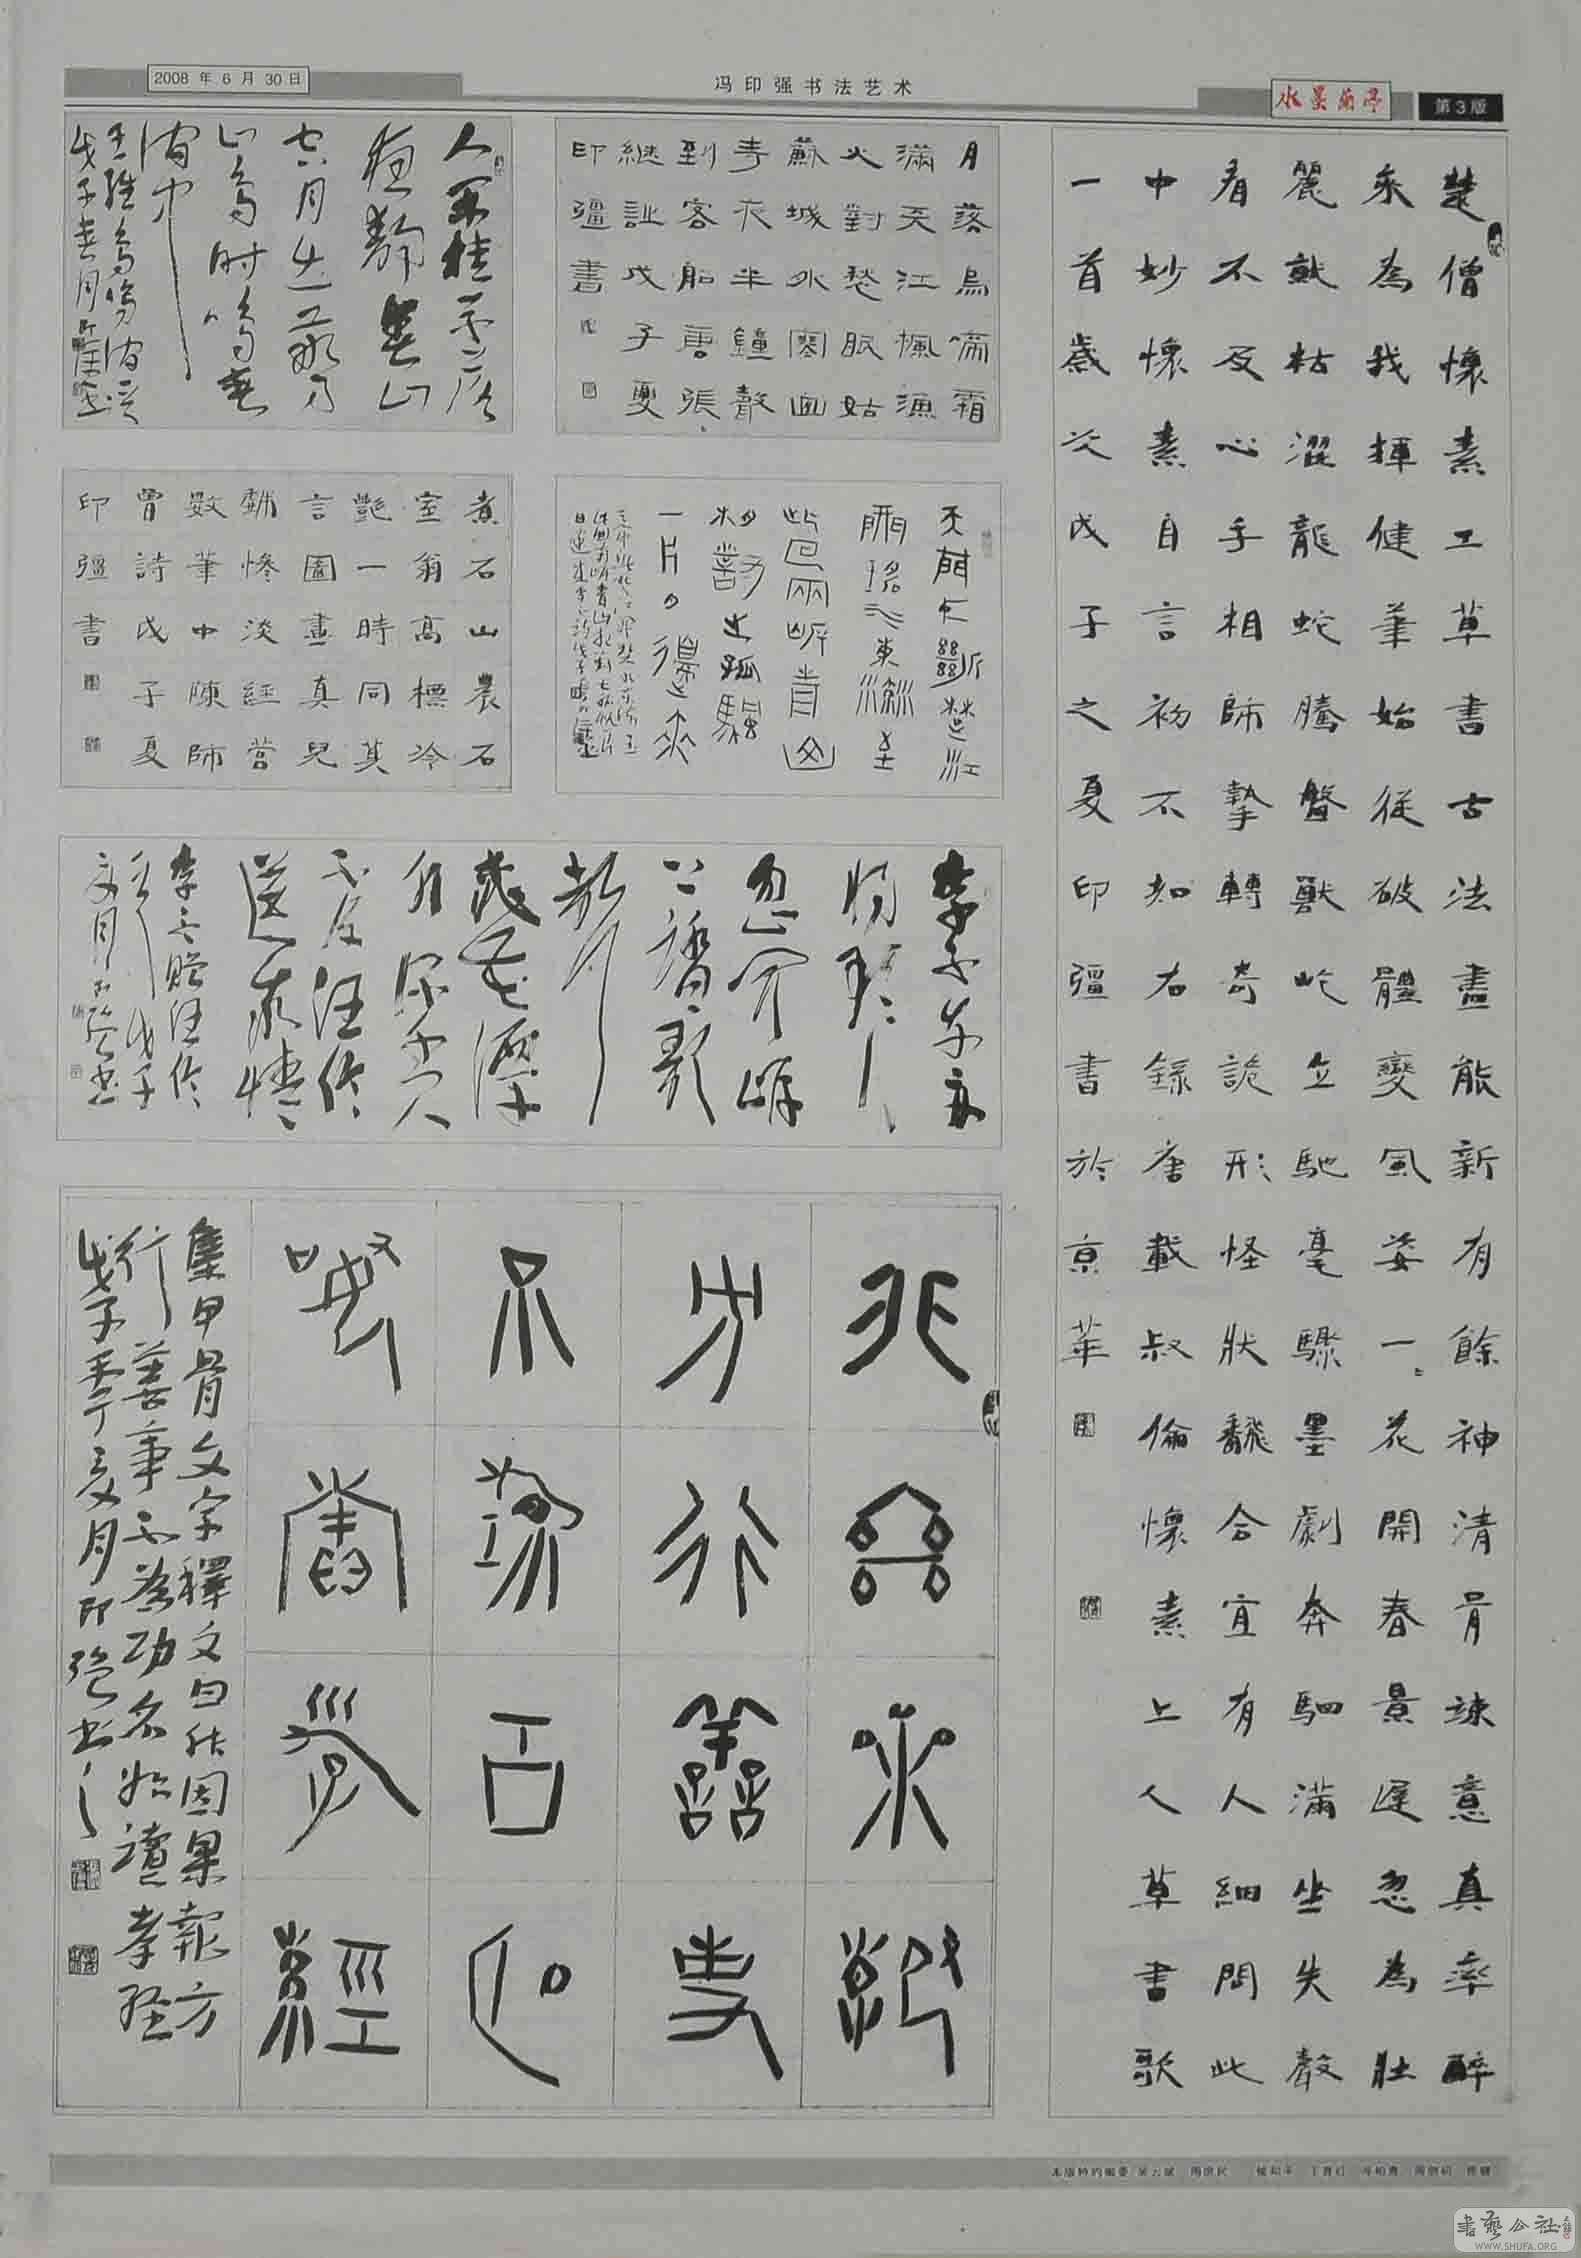 2008 年 6 月 30 日
冯印强书法艺术
水墨兰亭
第3版
楚僧懷素工草書古法盡能新有餘神清骨竦意真率醉
來為我揮健筆始從破體變風姿一〻花開春景遲忽為壯
麗就枯澀龍蛇騰盤獸屹立馳毫驟墨劇奔駟滿坐失聲
看不及心手相師勢轉奇詭形怪狀翻合宜有人細問此
中妙懷素自言初不知右錄唐載叔倫懷素上人草書歌
一首歲次戊子之夏印彊書於京華
月落烏啼霜
滿天江楓漁
火對愁眠姑
蘇城外寒山
寺夜半鐘聲
到客船唐張
繼詩戊子夏
印彊書
人閒桂花落
夜靜春山
空月出驚
山鳥時鳴春
澗中
王維鳥鳴澗
天門中斷楚江
開碧水東流至
此回兩岸青山
相對出孤帆
一片日邊來
煮石山農石
室翁高標冷
艷一時同莫
言圖畫真兒
戲慘淡經營
數筆中陳師
曾詩戊子夏
印彊書
李白乘舟
將欲行
忽聞岸
上踏歌
聲
桃花潭
水深千尺
不及汪倫
送我情
李白贈汪倫
非因果報
方行善事
不為功名
始讀孝經
集甲骨文字釋文曰非因果報方
行善事不為功名始讀孝經
戊子季夏月印強書
書藝公社
WWW.SHUFA.ORG